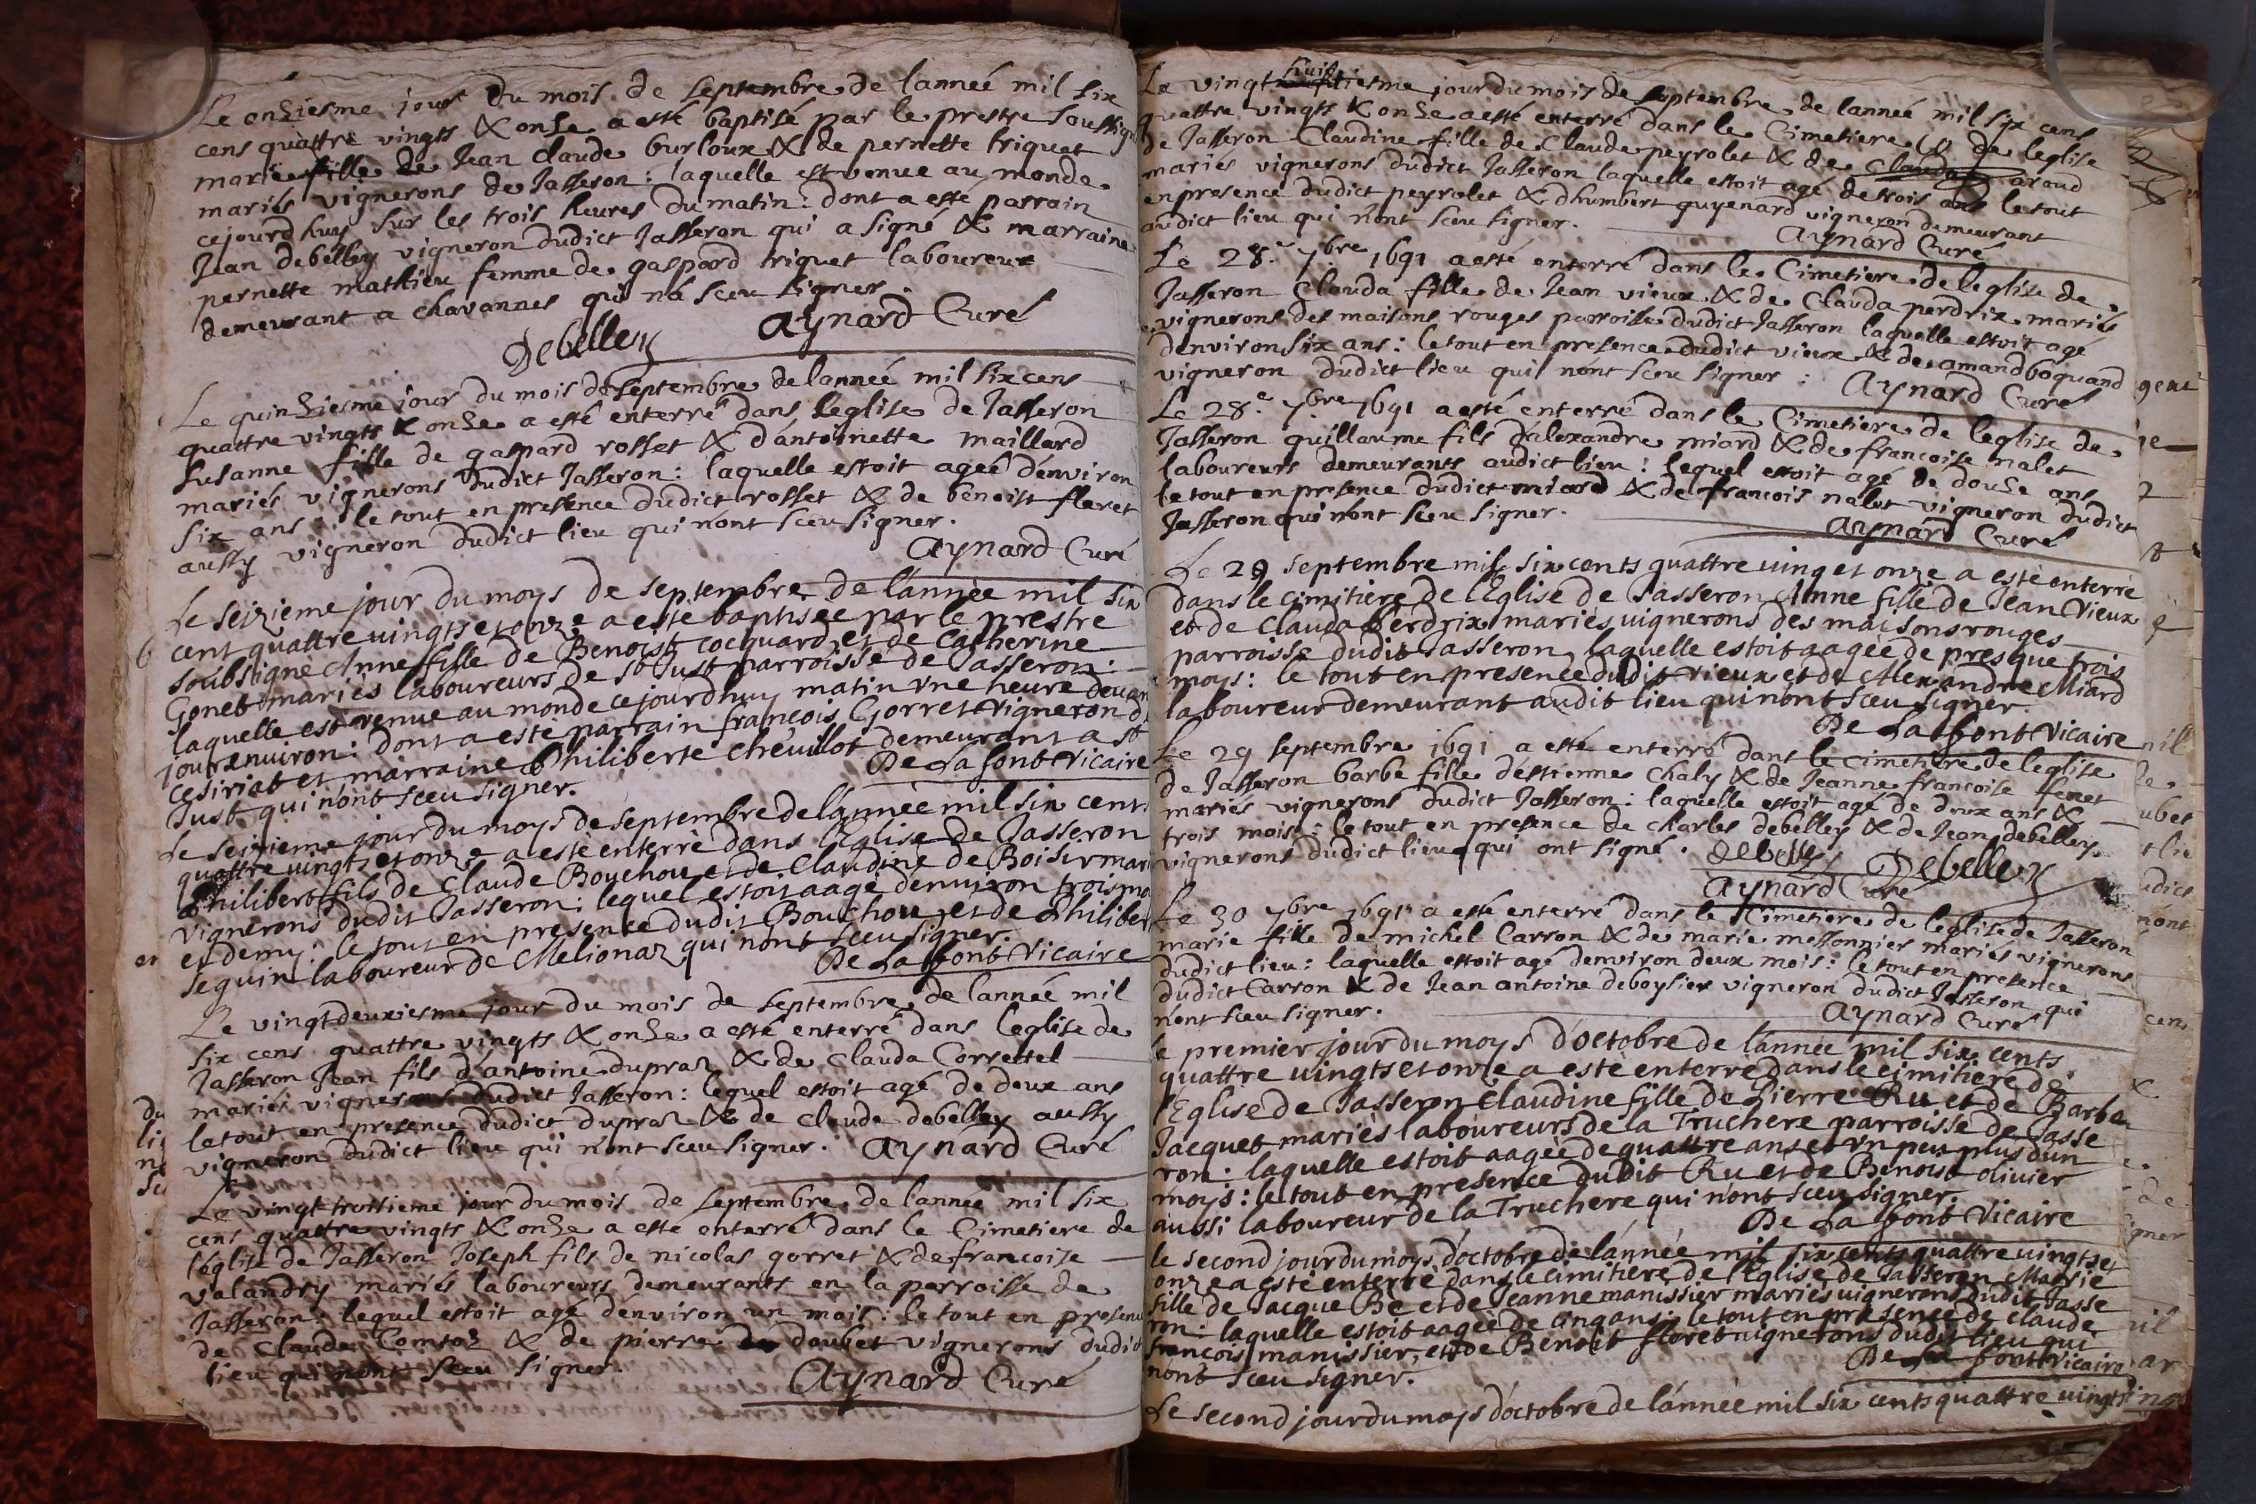 Le onziesme jour du mois de septembre de lanneé mil six
cens quattre vingts & onze a esté baptisé par le prestre soussigné
marie fille de Jean claude burloux & de pernette triquet
mariés vignerons de Jasseron : laquelle est venue au monde
cejourdhuy sur les trois heures du matin : dont a esté parrain
Jean debelley vigneron dudict Jasseron qui a signé & marraine
pernette mathieu femme de gaspard triquet laboureur
demeurant a chavannes qui na sceu signer.
Debelley aynard Curé
Le quinziesme jour du mois de septembre de lanneé mil six cens
quattre vingts & onze a esté enterré dans leglise de Jasseron
susanne fille de gaspard rosset & dantoinette maillard
mariés vignerons dudict Jasseron : laquelle estoit ageé denviron
six ans : le tout en presence dudict rosset & de benoist floret
aussy vigneron dudict lieu qui nont sceu signer.
aynard Curé
Le seizieme jour du moys de septembre de lánneè mil six
cent quattre uingts et onze a estè baptisee par le prestre
soubsignè Anne fille de Benoist cocquard et de Catherine
Gonet mariès laboureurs de st Just parroisse de Jasseron :
laquelle est venue au monde cejourdhuy matin vne heure deuant
jour enuiron : dont a estè parrain francois Gorret vigneron de
cesiriat et marraine Philiberte cheuillot demeurant a st
Just qui nónt sceu signer.
De La font Vicaire
Le seizieme jour du moys de septembre de lánneè mil six cents
quattre uingts et onze a estè enterrè dans lEglise de Jasseron
Philibert fils de Claude Bouchou et de Claudine de Boisir mariès
vignerons dudit Jasseron : lequel estoit aagè dénuiron trois mois
et demy : le tout en presence dudit Bouchou et de Philibert
seguin laboureur de Melionaz qui nónt sceu signer.
De La font Vicaire
Le vingtdeuxiesme jour du mois de septembre de lanneé mil
six cens quattre vingts & onze a esté enterré dans leglise de
Jasseron Jean fils dantoine dupraz & de clauda Correttel
mariés vignerons dudict Jasseron : lequel estoit agé de deux ans
le tout en presence dudict dupraz & de claude debelley aussy
vigneron dudict lieu qui nont sceu signer. aynard Curé
Le vingt troisieme jour du mois de septembre de lanneé mil six
cens quattre vingts & onze a esté enterré dans le Cimetiere de
leglise de Jasseron Joseph fils de nicolas gorret & de francoise
valandry mariés laboureurs demeurants en la parroisse de
Jasseron : lequel estoit agé denviron un mois : le tout en presence
de Claude Comtoz & de pierre doubet vignerons dudict
lieu qui nont sceu signer.
aynard Curé
Le vingt huitiesme jour du mois de septembre de lanneé mil six cens
quattre vingts & onze a esté enterré dans le Cimetiere de leglise
de Jasseron Claudine fille de Claude peyrolet & de Clauda araud
mariés vignerons dudict Jasseron laquelle estoit agé de trois ans le tout
en presence dudict peyrolet & dhumbert guyenard vigneron demeurant
audict lieu qui nont sceu signer.
aynard Curé
Le 28.e 7bre 1691 a esté enterré dans le Cimetiere de leglise de
Jasseron clauda fille de Jean vieux & de Clauda perdrix mariés
vignerons des maisons rouges parroisse dudict Jasseron laquelle estoit agé
denviron six ans : le tout en presence dudict vieux & de amand boquand
vigneron dudict lieu quil nont sceu signer : aynard Curé
Le 28.e 7bre 1691 a esté enterré dans le Cimetiere de leglise de
Jasseron guillaume fils dalexandre miard & de francoise nalet
laboureurs demeurants audict lieu : lequel estoit agé de douze ans
le tout en presence dudict miard & de francois nalet vigneron dudict
Jasseron qui nont sceu signer.
aynard Curé
Le 29 septembre mil six cents quattre uing et onze a estè enterrè
dans le cimitière de lEglise de Jasseron Anne fille de Jean Vieux
et de Clauda Perdrix mariès uignerons des maisons rouges
parroisse dudit Jasseron, laquelle estoit aagèe de presque trois
moys : le tout en presence dudit vieux et de Alexandre Miard
laboureur demeurant audit lieu qui nont sceu signer.
De La font Vicaire
Le 29 septembre 1691 a esté enterré dans le cimetiere de leglise
de Jasseron barbe fille destienne Chaly & de Jeanne francoise feret
mariés vignerons dudict Jasseron : laquelle estoit agé de deux ans &
trois mois : le tout en presence de charles debelley & de Jean debelley
vignerons dudict lieu qui ont signé. debelley Debelley
aynard Curé
Le 30 7bre 1691 a esté enterré dans le Cimetiere de leglise de Jasseron
marie fille de michel Carron & de marie messonnier mariés vignerons
dudict lieu : laquelle estoit agé denviron deux mois : le tout en presence
dudict Carron & de Jean antoine deboysier vigneron dudict Jasseron qui
nont sceu signer.
aynard Curé
Le premier jour du moys dóctobre de lánnèe mil six cents
quattre uingts et onze a estè enterrè dans le cimitière de
lEglise de Jasseron Claudine fille de Pierre Ru et de Barbe
Jacquet mariès laboureurs de la Truchere parroisse de Jasse
ron : laquelle estoit aagèe de quattre ans et vn peu plus dun
moys : le tout en presence dudit Ru et de Benoist olivier
aussi laboureur de la Truchere qui nónt sceu signer.
De La font Vicaire
le second jour du moys dóctobre de lánnèe mil six cents quattre uingts et
onze a estè enterrè dans le cimitière de lEglise de Jasseron Marie
fille de Jacque Bé et de Jeanne manissier mariès uignerons dudit Jasse
ron : laquelle estoit aagèe de cinq ans : le tout en presence de claude
francois manissier, et de Benoit floret uignerons dudit lieu qui
nónt sceu signer.
De La font Vicaire
Le second jour du moys dóctobre de lánnèe mil six cents quattre uingts